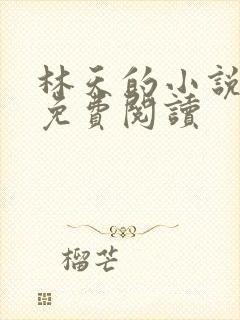 林天的小說
免費閱讀
榴芒